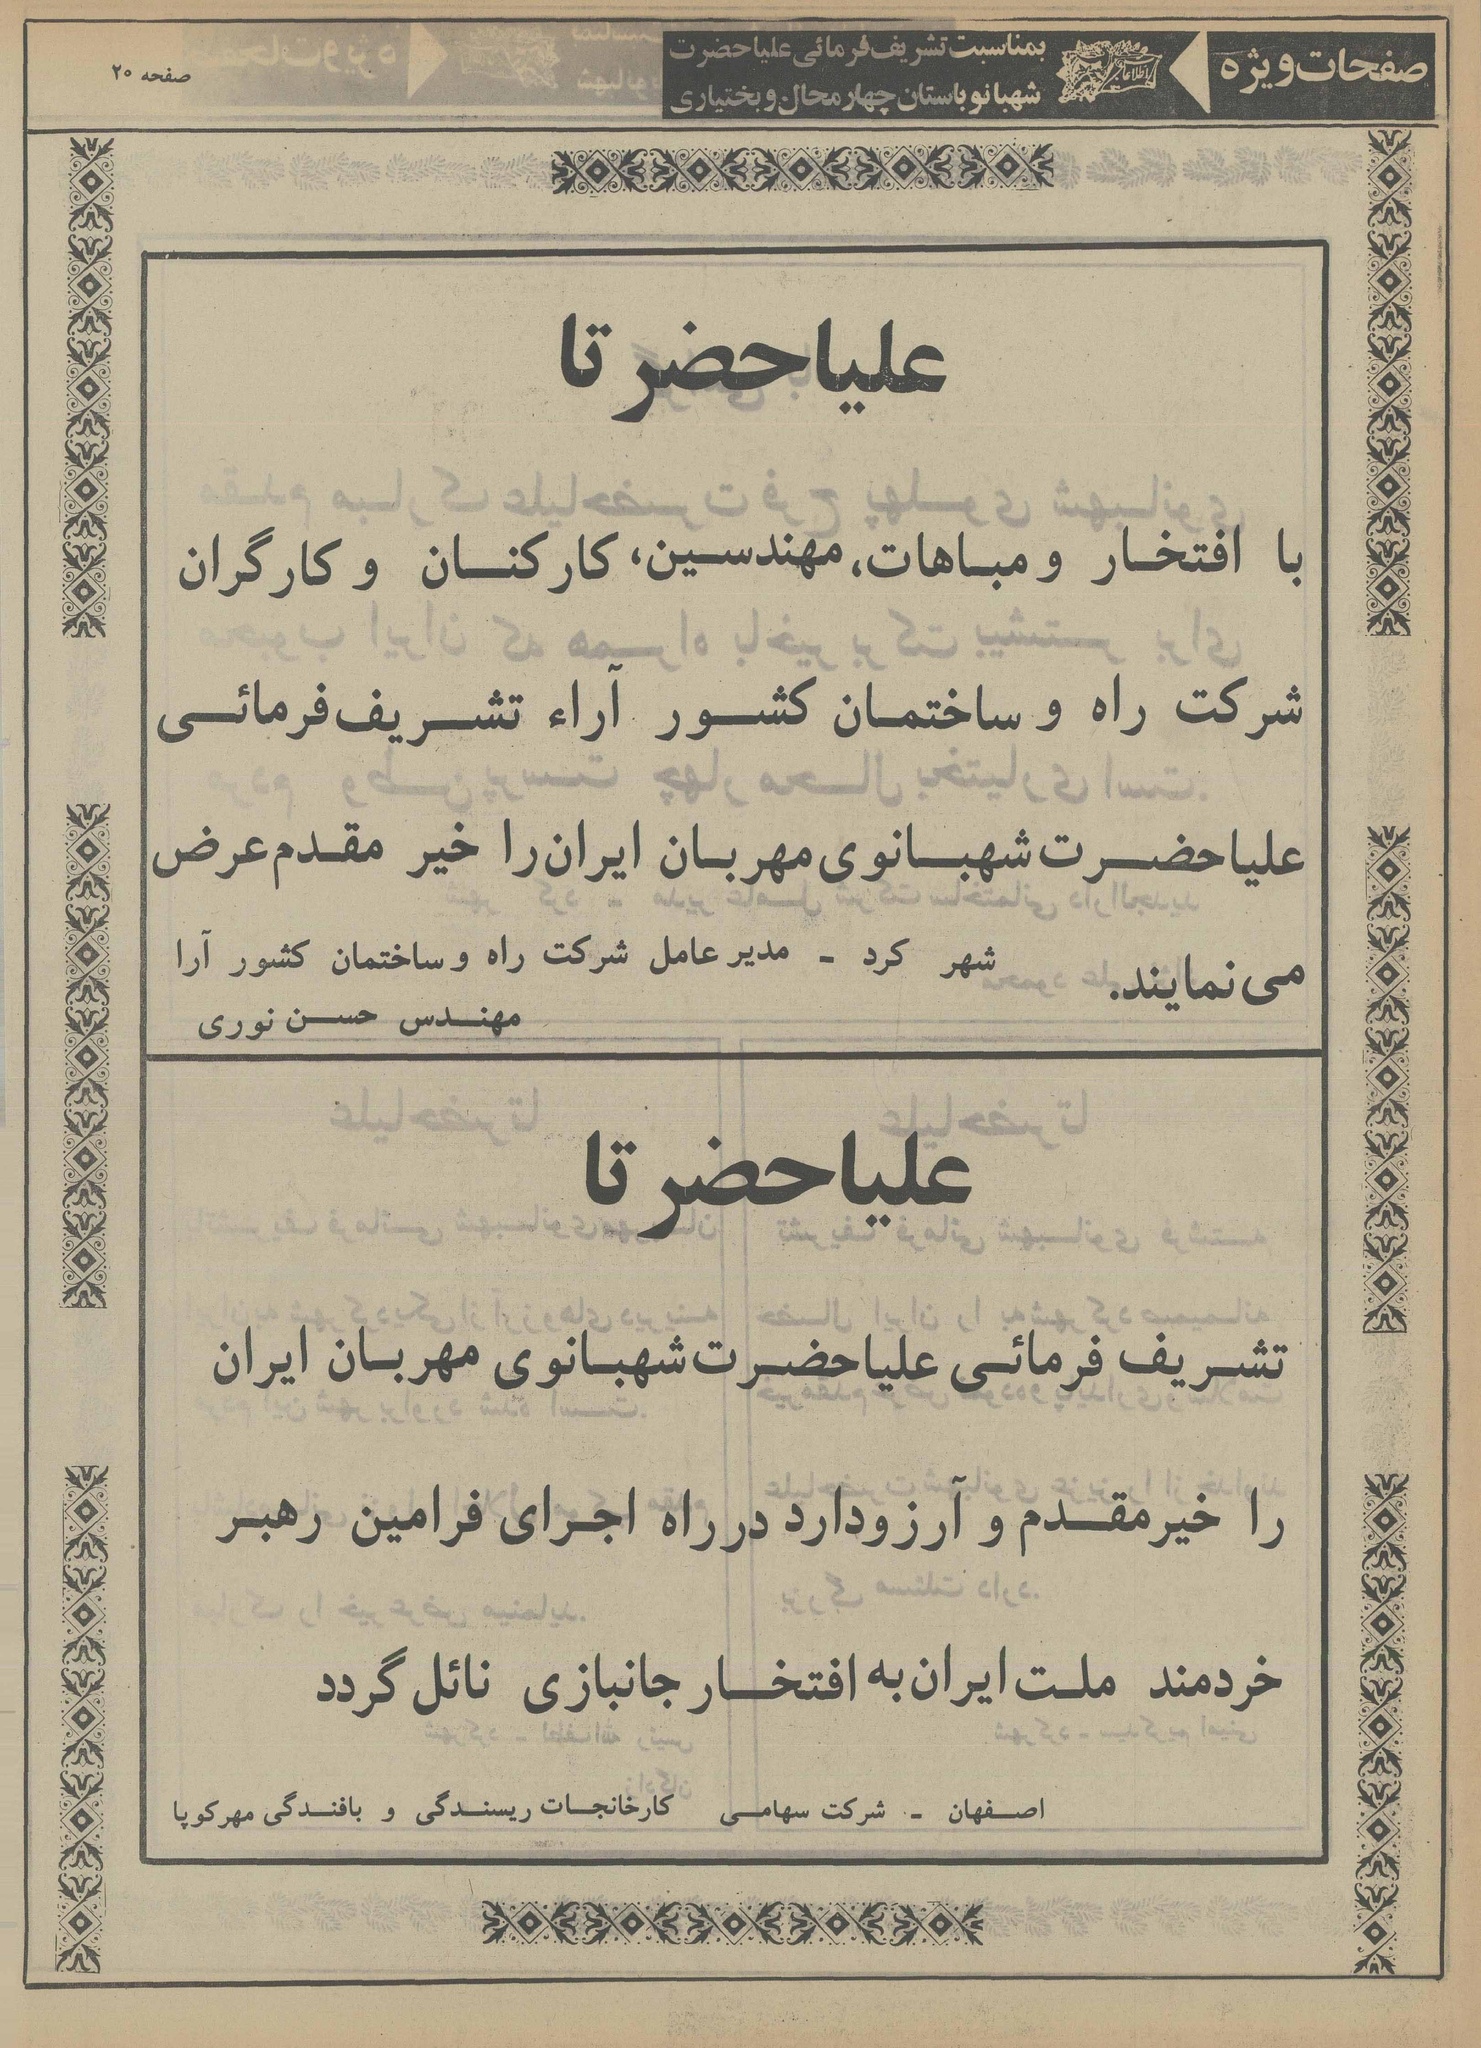 صفحات ویژه
اطلاعات
بمناسبت تشریف فرمائی علیاحضرت
شهبانو باستان چهارمحال و بختیاری
صفحه ۲۰
علیاحضرتا
با افتخار و مباهات، مهندسین، کارکنان و کارگران
شرکت راه و ساختمان کشور آراء تشریف فرمائی
علیاحضرت شهبانوی مهربان ایران را خیر مقدم عرض
می نمایند.
شهر کرد - مدیر عامل شرکت راه و ساختمان کشور آرا
مهندس حسن نوری
علیاحضرتا
تشریف فرمائی علیاحضرت شهبانوی مهربان ایران
را خیر مقدم و آرزو دارد در راه اجرای فرامین رهبر
خردمند ملت ایران به افتخار جانبازی نائل گردد
اصفهان - شرکت سهامی کارخانجات ریسندگی و بافندگی مهرکوپا